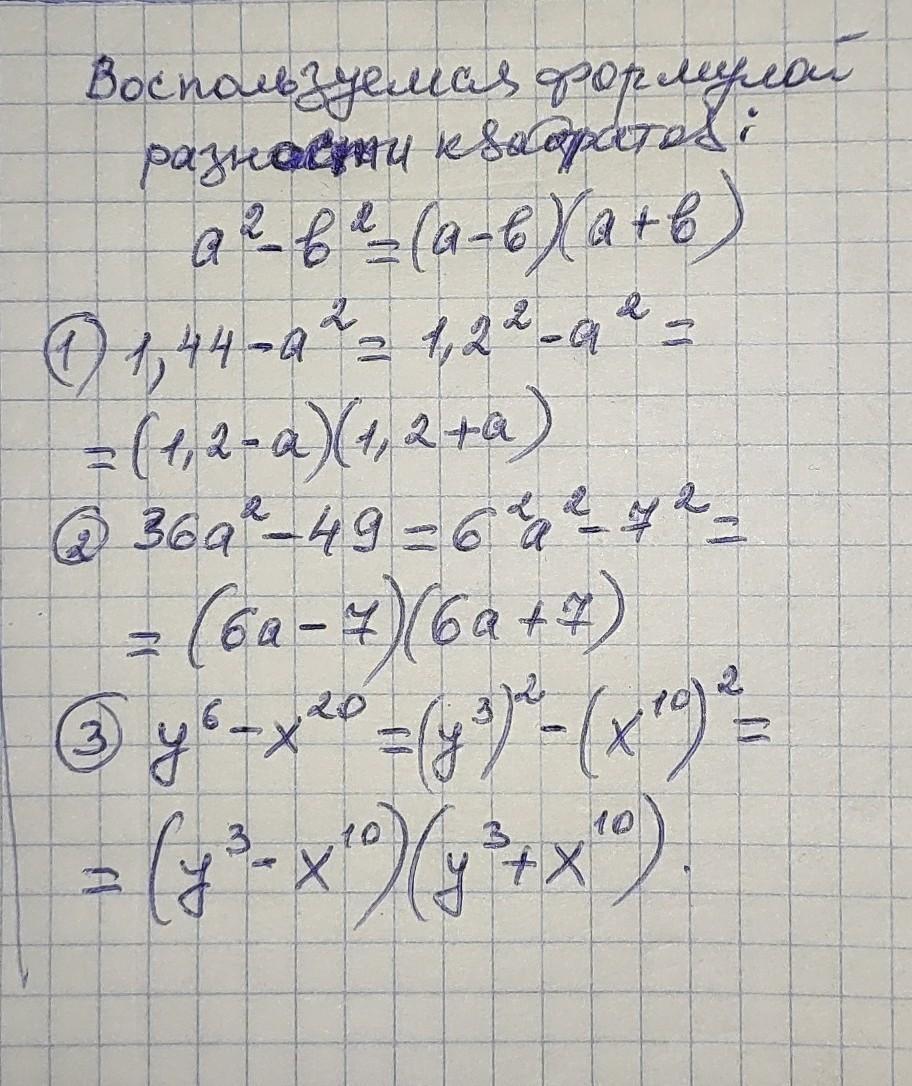 Воспользуемся формулой
разности квадратов:
a² - в² = (a - в)(a + в)
① 1,44 - a² = 1,2² - a² =
= (1,2 - a)(1,2 + a)
② 36a² - 49 = 6²a² - 7² =
= (6a - 7)(6a + 7)
③ y⁶ - x²⁰ = (y³)² - (x¹⁰)² =
= (y³ - x¹⁰)(y³ + x¹⁰).